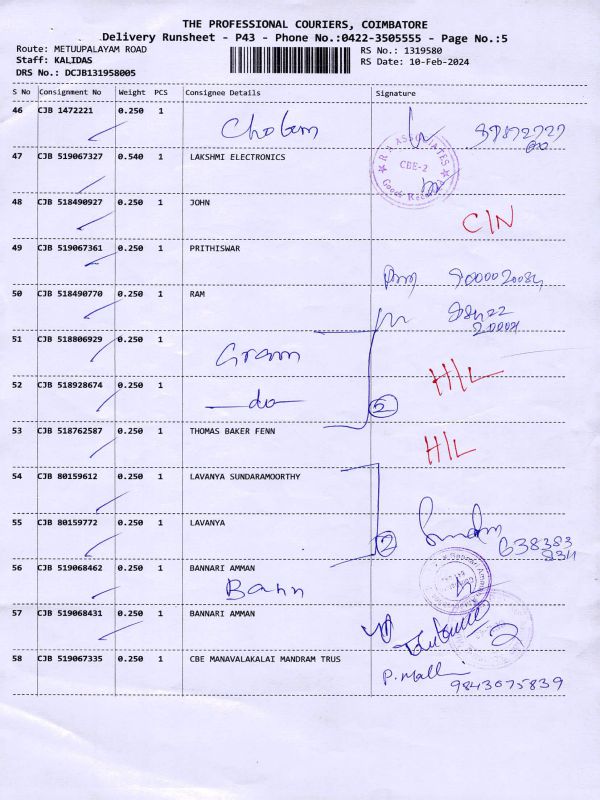 THE PROFESSIONAL COURIERS, COIMBATORE
Delivery Runsheet - P43 - Phone No.:0422-3505555 - Page No.:5
Route: METUUPALAYAM ROAD
RS No.: 1319580
Staff: KALIDAS
RS Date: 10-Feb-2024
DRS No.: DCJB131958005
S No Consignment No Weight PCS Consignee Details Signature
46 CJB 1472221 0.250 1
47 CJB 519067327 0.540 1 LAKSHMI ELECTRONICS
ASSOCIATES
CBE-2
48 CJB 518490927 0.250 1 JOHN
C/N
49 CJB 519067361 0.250 1 PRITHISWAR
50 CJB 518490770 0.250 1 RAM
51 CJB 518806929 0.250 1
Gram
52 CJB 518928674 0.250 1
do
5
H/L
53 CJB 518762587 0.250 1 THOMAS BAKER FENN
H/L
54 CJB 80159612 0.250 1 LAVANYA SUNDARAMOORTHY
55 CJB 80159772 0.250 1 LAVANYA
2
56 CJB 519068462 0.250 1 BANNARI AMMAN
57 CJB 519068431 0.250 1 BANNARI AMMAN
2
58 CJB 519067335 0.250 1 CBE MANAVALAKALAI MANDRAM TRUS
P. Malli
9843075839